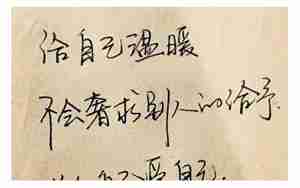 给自己温暖
不会奢求别人的给予.
自己